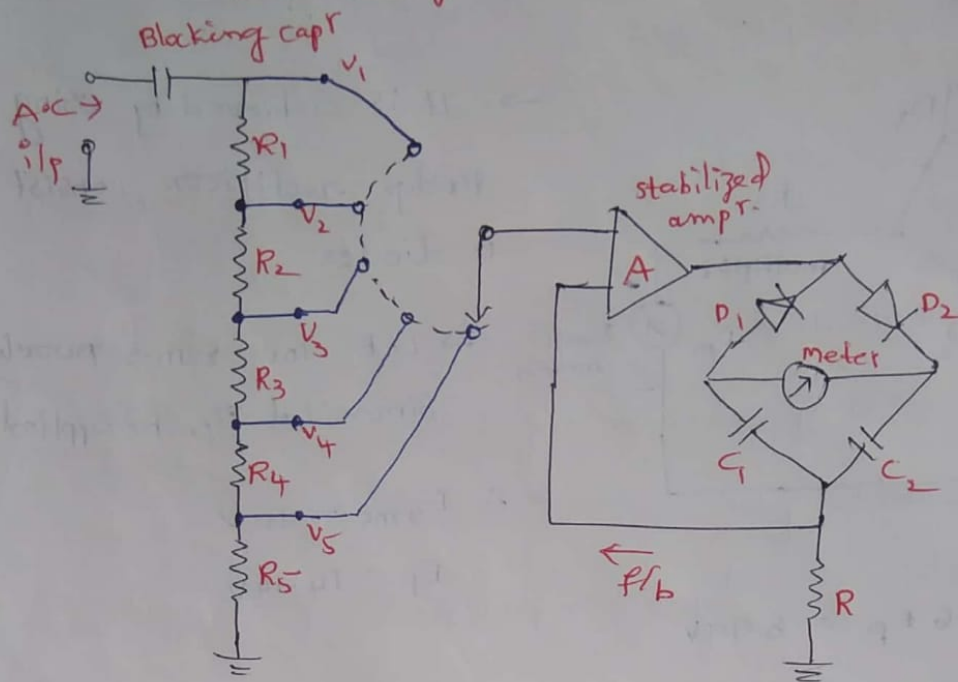 Blocking capr
A.C →
i/p
V1
R1
V2
R2
V3
R3
V4
R4
V5
R5
stabilized
ampr.
A
D1
D2
meter
C1
C2
← f/b
R